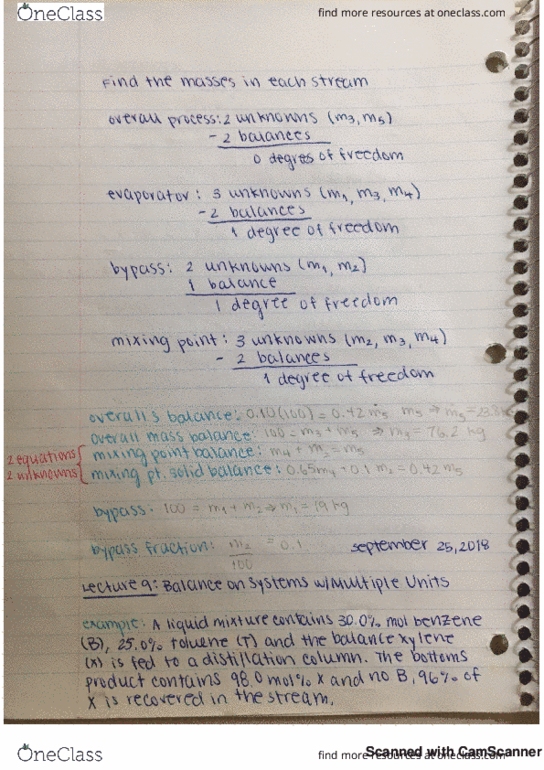 OneClass
find more resources at oneclass.com
Find the masses in each stream
overall process: 2 unknowns (m3, m5)
- 2 balances
0 degrees of freedom
evaporator: 3 unknowns (m1, m3, m4)
- 2 balances
1 degree of freedom
bypass: 2 unknowns (m1, m2)
1 balance
1 degree of freedom
mixing point: 3 unknowns (m2, m3, m4)
- 2 balances
1 degree of freedom
overall s balance: 0.10(100) = 0.42 m5 m5 ⇒ m5 = 23.8
overall mass balance: 100 = m3 + m5 ⇒ m3 = 76.2 kg
2 equations mixing point balance: m4 + = m5
2 unknowns mixing pt. solid balance: 0.65m4 + 0.1 m2 = 0.42 m5
bypass - 100 = m1 + m2 ⇒ m1 =
bypass fraction: m2/100 = 0.1 september 25, 2018
Lecture 9: Balance on Systems w/Multiple Units
example: A liquid mixture contains 30.0% mol benzene
(B), 25.0% toluene (T) and the balance xylene
(X) is fed to a distillation column. The bottoms
product contains 98.0 mol% X and no B, 96% of
X is recovered in the stream.
OneClass
find more resources at oneclass.com
Scanned with CamScanner